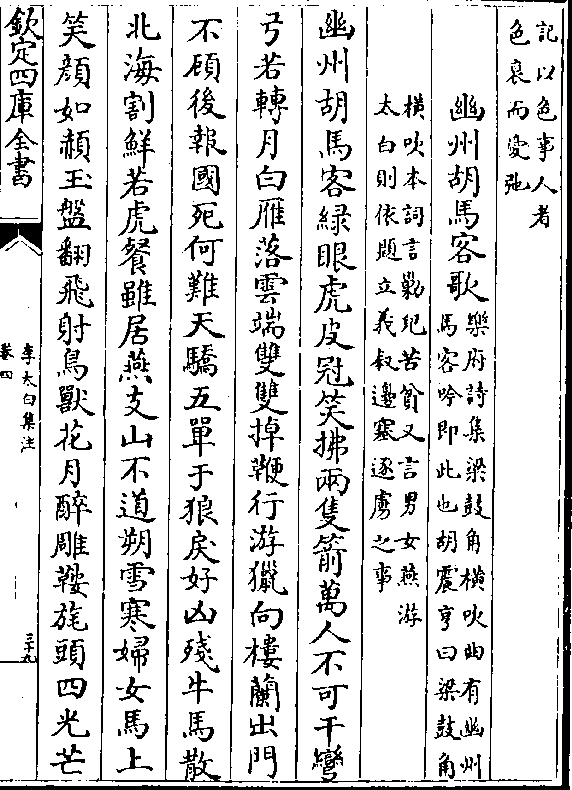 記以色事人者
色衰而愛弛
幽州胡馬客歌
樂府詩集梁鼓角橫吹曲有幽州
馬客吟即此也胡震亨曰梁鼓角
橫吹本詞言勦犯苦貧又言男女燕游
太白則依題立義叙邊塞逐虜之事
幽州胡馬客綠眼虎皮冠笑拂兩隻箭萬人不可干彎
弓若轉月白雁落雲端雙雙掉鞭行游獵向樓蘭出門
不顧後報國死何難天驕五單于狼戾好凶殘牛馬散
北海割鮮若虎餐雖居燕支山不道朔雪寒婦女馬上
笑顏如赬玉盤翻飛射鳥獸花月醉雕鞍旄頭四光芒
欽定四庫全書
李太白集注
卷四
三十九